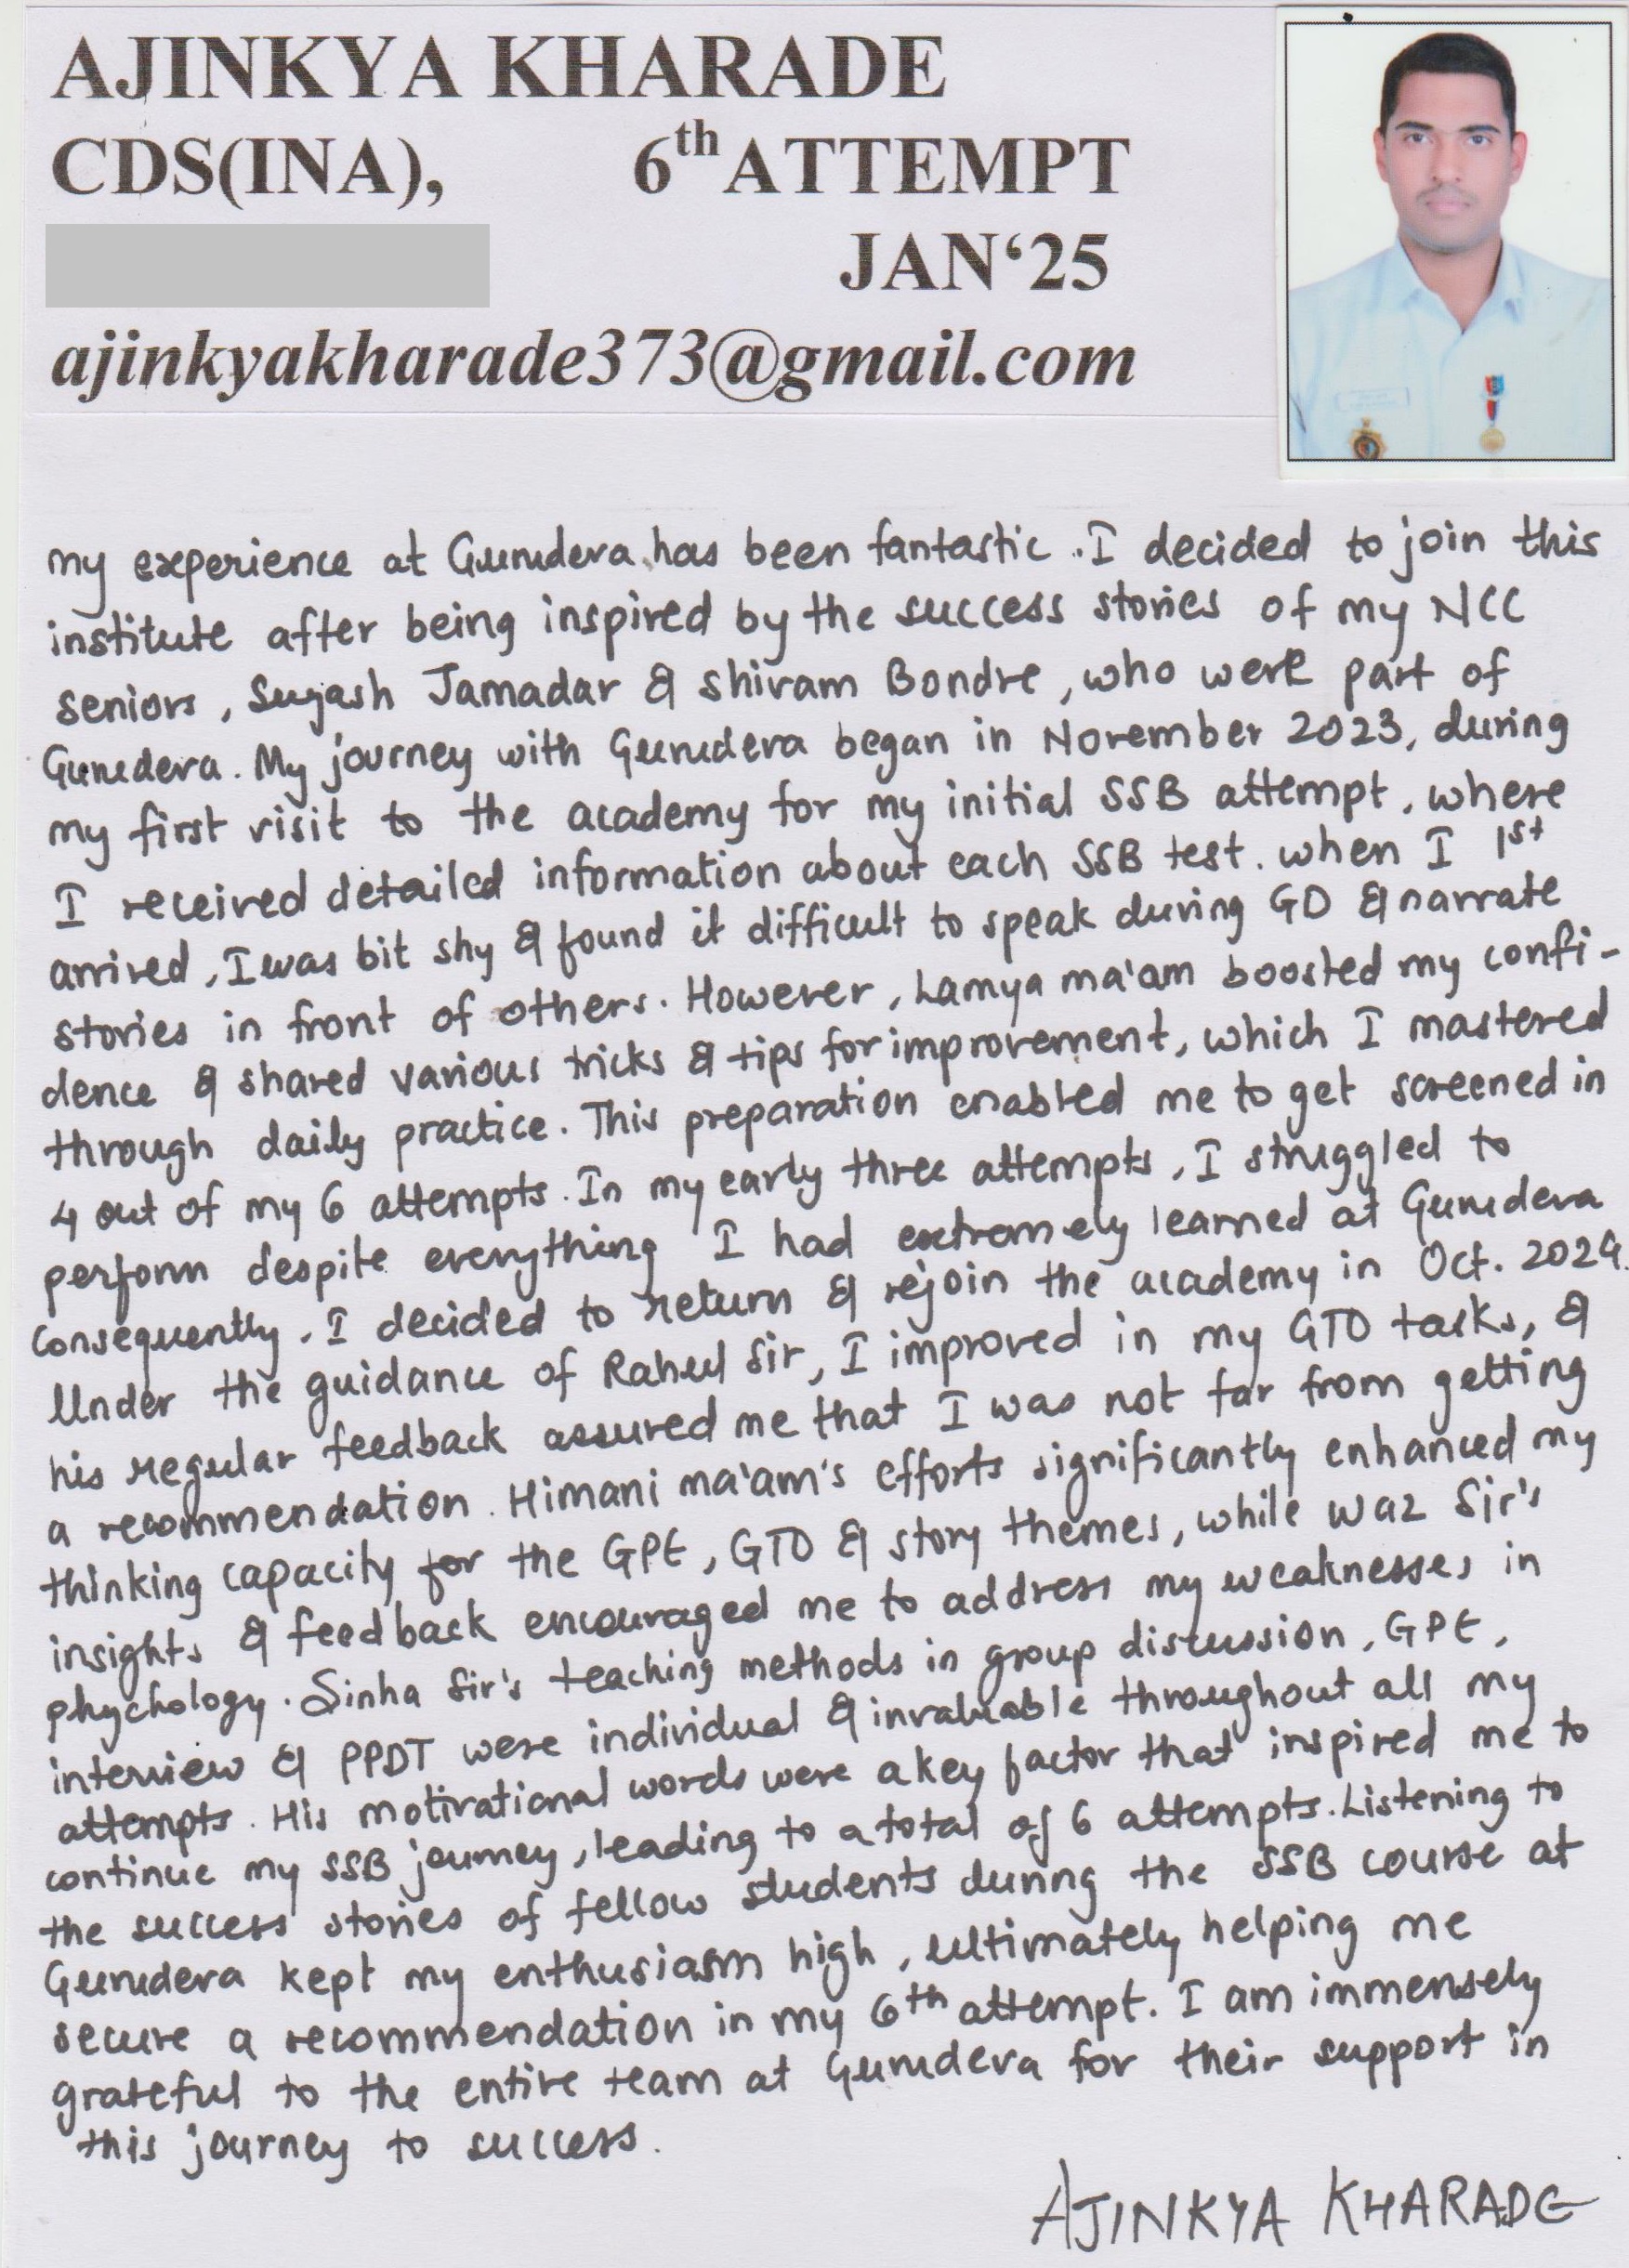 AJINKYA KHARADE
CDS(INA), 6th ATTEMPT
JAN‘25
ajinkyakharade373@gmail.com
my experience at Gurudeva has been fantastic. I decided to join this
institute after being inspired by the success stories of my NCC
seniors, Suyash Jamadar & Shivam Bondre, who were part of
Gurudeva. My journey with Gurudeva began in November 2023, during
my first visit to the academy for my initial SSB attempt, where
I received detailed information about each SSB test. when I 1st
arrived, I was bit shy & found it difficult to speak during GD & narrate
stories in front of others. However, Lamya ma'am boosted my confi-
dence & shared various tricks & tips for improvement, which I mastered
through daily practice. This preparation enabled me to get screened in
4 out of my 6 attempts. In my early three attempts, I struggled to
perform despite everything I had extremely learned at Gurudeva
Consequently, I decided to return & rejoin the academy in Oct. 2024.
Under the guidance of Rahul Sir, I improved in my GTO tasks, &
his regular feedback assured me that I was not far from getting
a recommendation. Himani ma'am's efforts significantly enhanced my
thinking capacity for the GPE, GTO & story themes, while Waz Sir's
insights & feedback encouraged me to address my weaknesses in
phychology. Sinha Sir's teaching methods in group discussion, GPE,
interview & PPDT were individual & invaluable throughout all my
attempts. His motivational words were a key factor that inspired me to
continue my SSB journey, leading to a total of 6 attempts. Listening to
the success stories of fellow students during the SSB course at
Gurudeva kept my enthusiasm high, ultimately helping me
secure a recommendation in my 6th attempt. I am immensely
grateful to the entire team at Gurudeva for their support in
this journey to success.
AJINKYA KHARADE